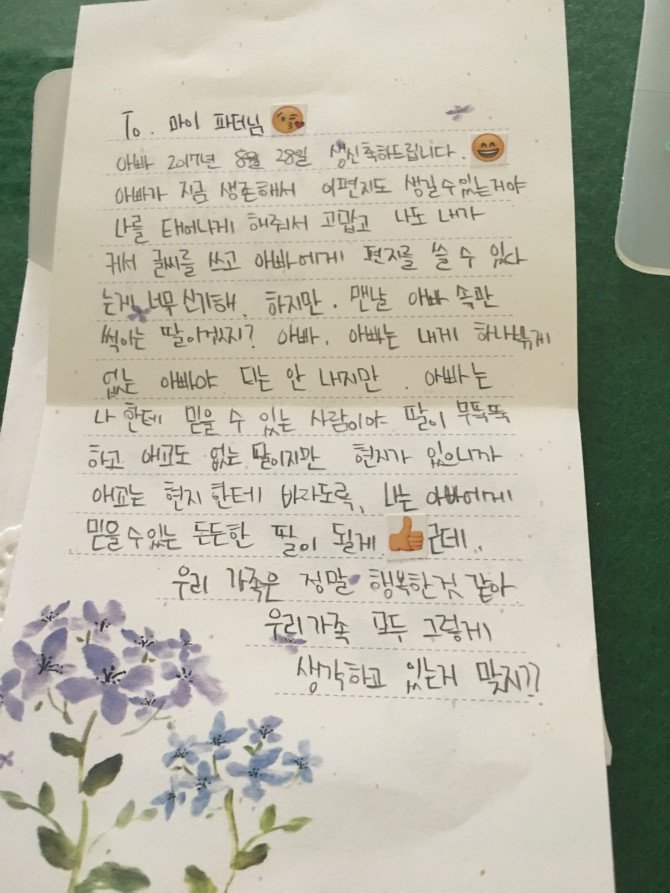 To. 마이 파더님
아빠 2017년 8월 28일 생신축하드립니다.
아빠가 지금 생존해서 이편지도 생길수있는거야
나를 태어나게 해줘서 고맙고 나도 내가
커서 글씨를 쓰고 아빠에게 편지를 쓸 수 있다
는게 너무 신기해. 하지만. 맨날 아빠 속만
썩이는 딸이였지? 아빠. 아빠는 내게 하나밖에
없는 아빠야. 티는 안 내지만. 아빠는
나 한테 믿을 수 있는 사람이야. 딸이 무뚝뚝
하고 애교도 없는 딸이지만 현지가 있으니까
애교는 현지 한테 바라도록, 나는 아빠에게
믿을수있는 든든한 딸이 될게 근데..
우리 가족은 정말 행복한것 같아
우리가족 모두 그렇게
생각하고 있는거 맞지??